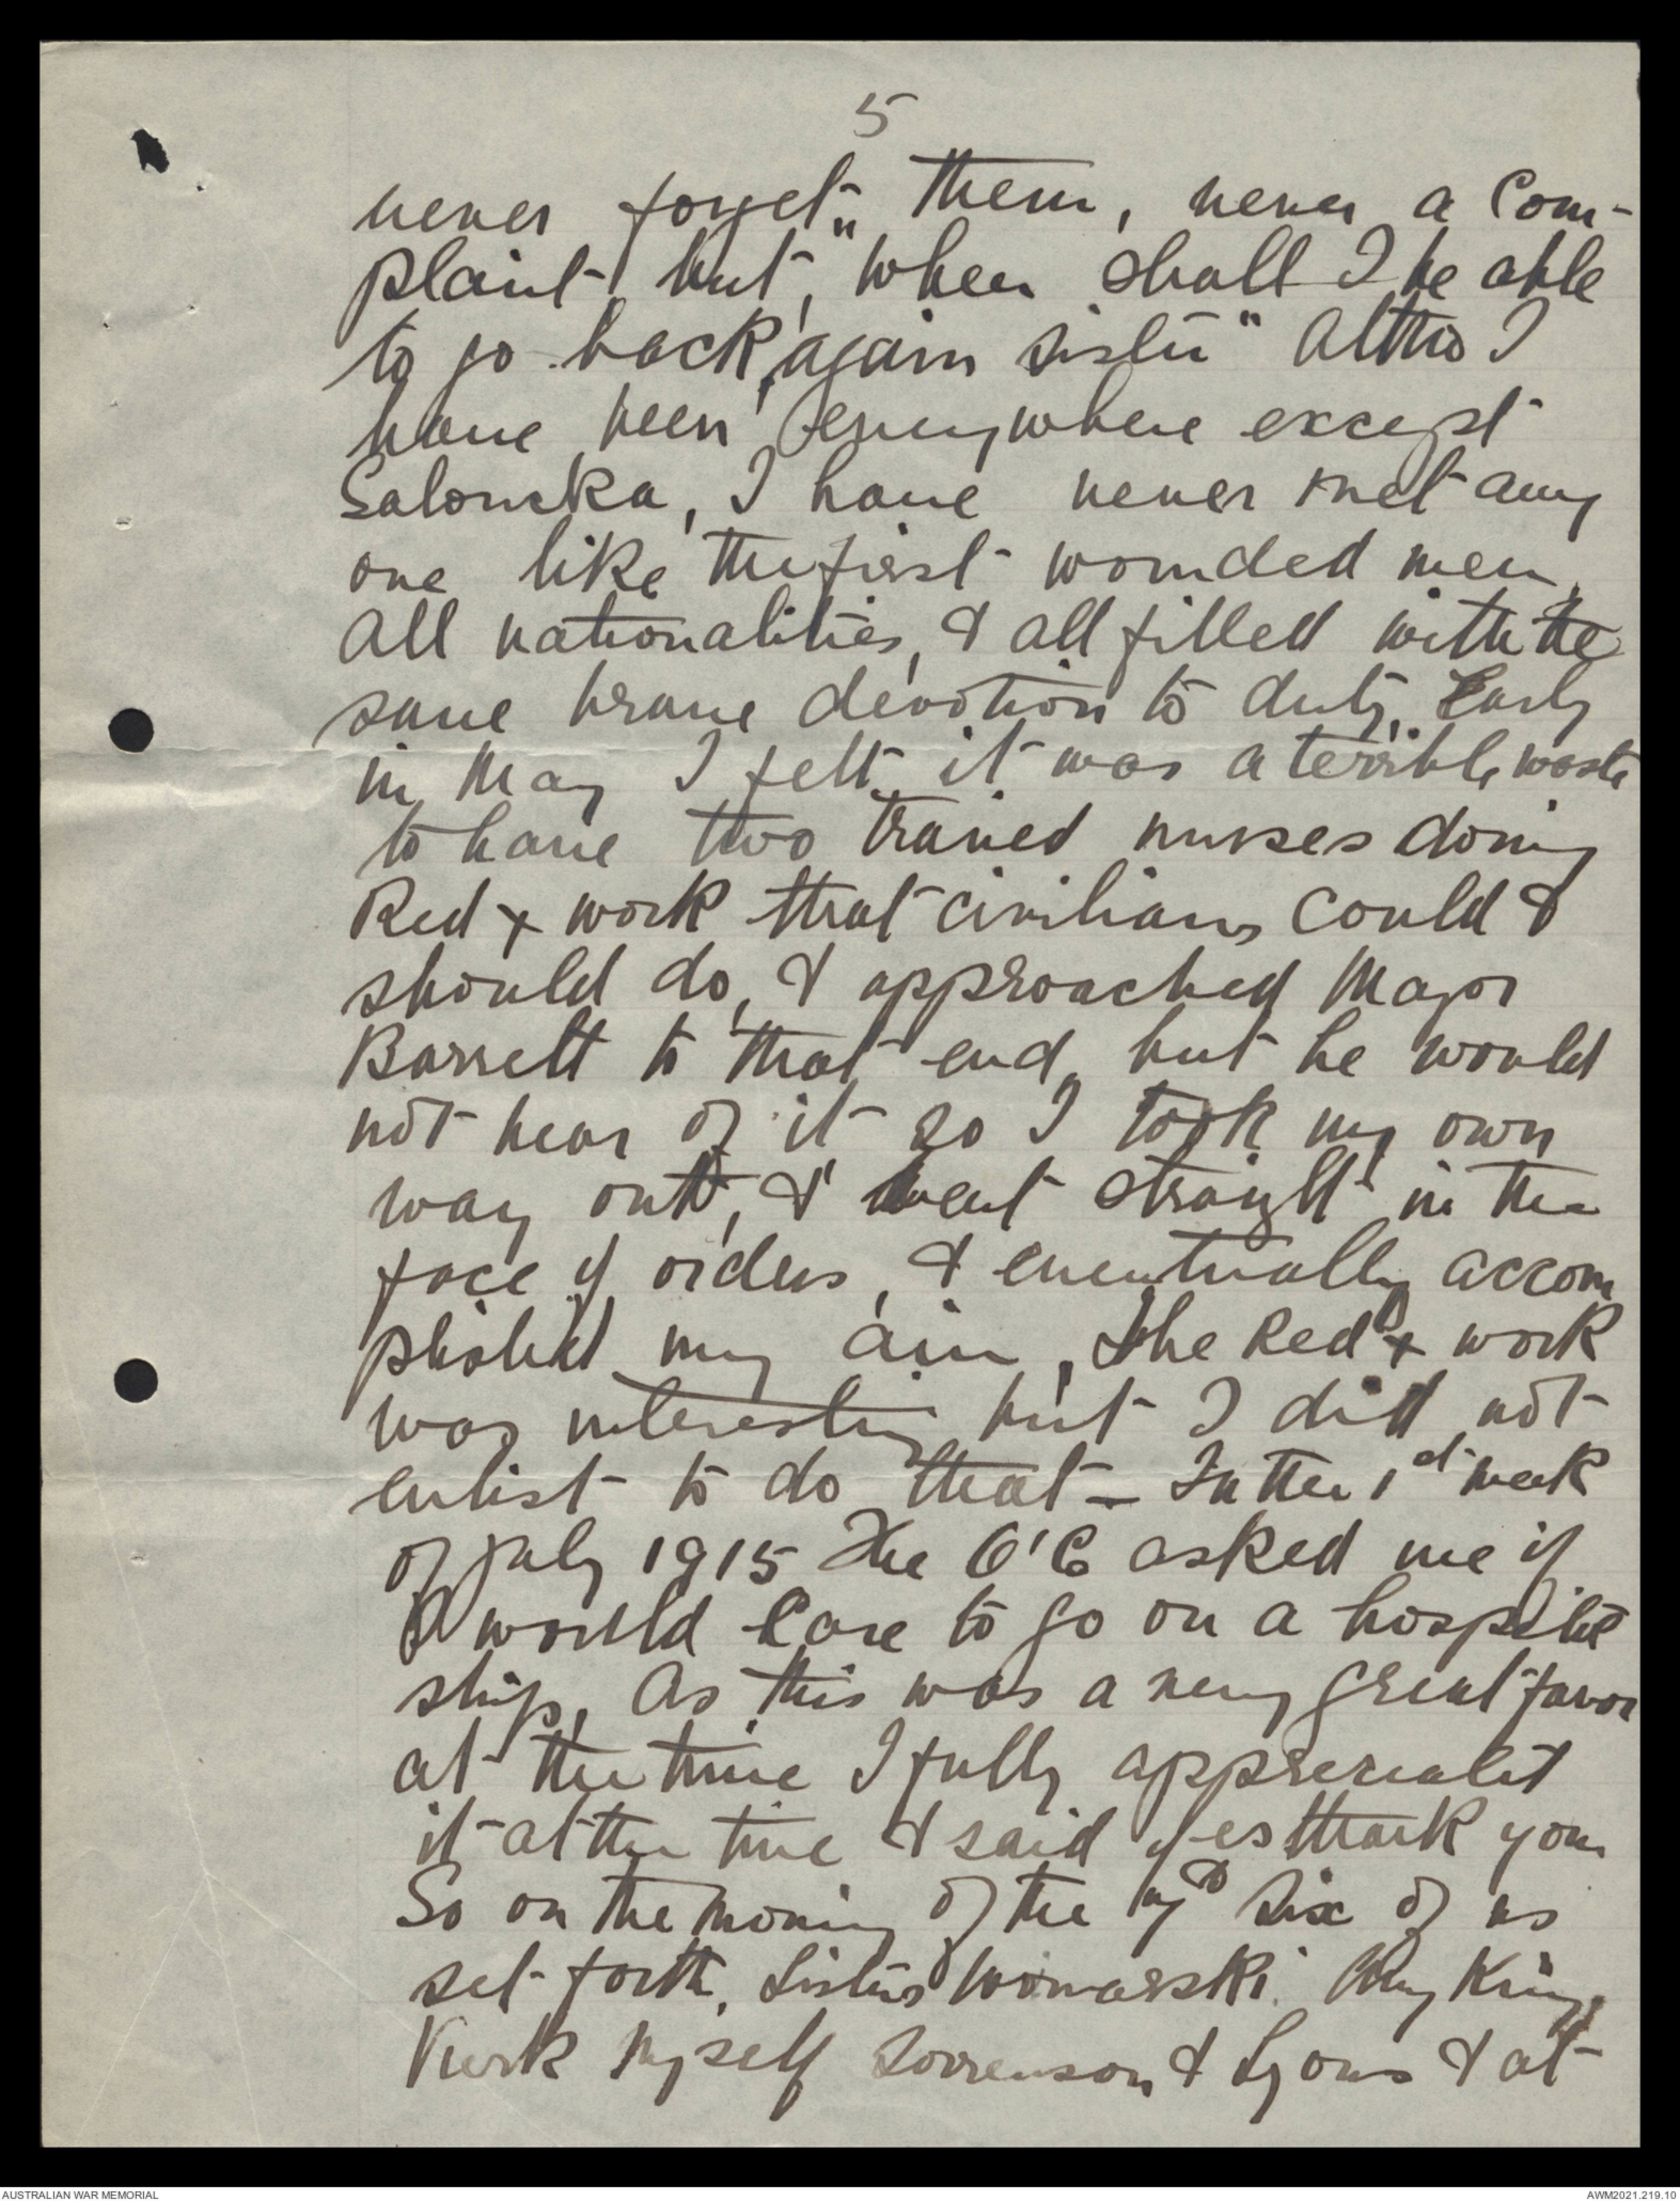 5
never forget them, never a Com-
plaint but, "when shall I be able
to go back again sister" Altho I
have been everywhere except
Salonika, I have never met any
one like the first wounded men,
all nationalities, & all filled with the
same brave devotion to duty, Early
in May I felt it was a terrible waste
to have two trained nurses doing
Red + work that civilians could &
should do, & approached Major
Barrett to that end, but he would
not hear of it so I took my own
way out, & went straight in the
face of orders, & eventually accom
plished my aim, the Red + work
was interesting but I did not
enlist to do that - In the 1st week
of July 1915 The O'C asked me if
I would care to go on a hospital
ship, As this was a very great favor
at the time I fully appreciated
it at the time & said yes thank you
So on the morning of the 7th Six of us
set forth, Sisters King,
Kirk Myself Sorrenson & Lyons & at
AUSTRALIAN WAR MEMORIAL
AWM2021.219.10